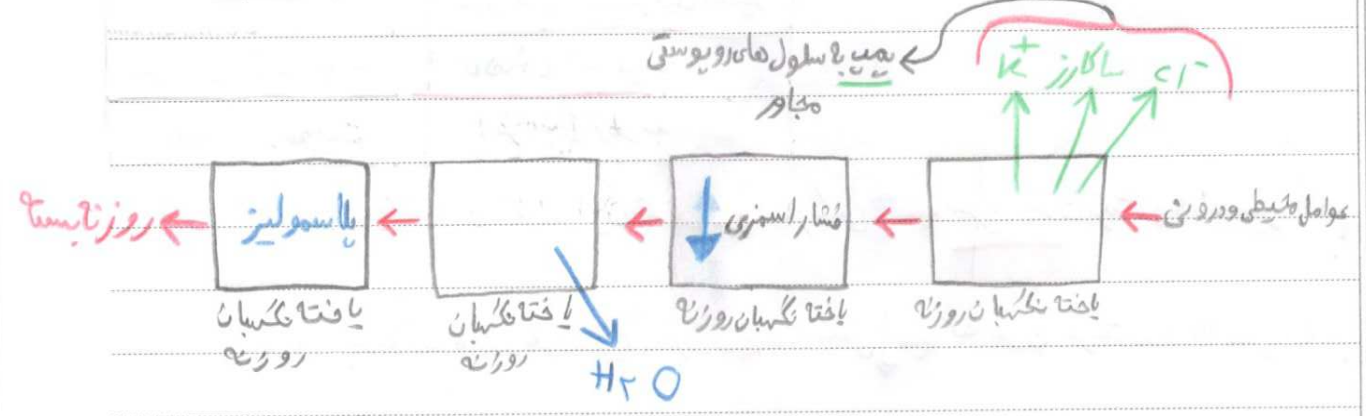 K⁺ ساکارز Cl⁻
پمپ به سلول های روپوستی
مجاور
عوامل محیطی و درونی
یاخته نگهبان روزنه
فشار اسمزی
یاخته نگهبان روزنه
یاخته نگهبان
روزنه
H₂O
پلاسمولیز
یافته نگهبان
روزنه
روزنه بسته